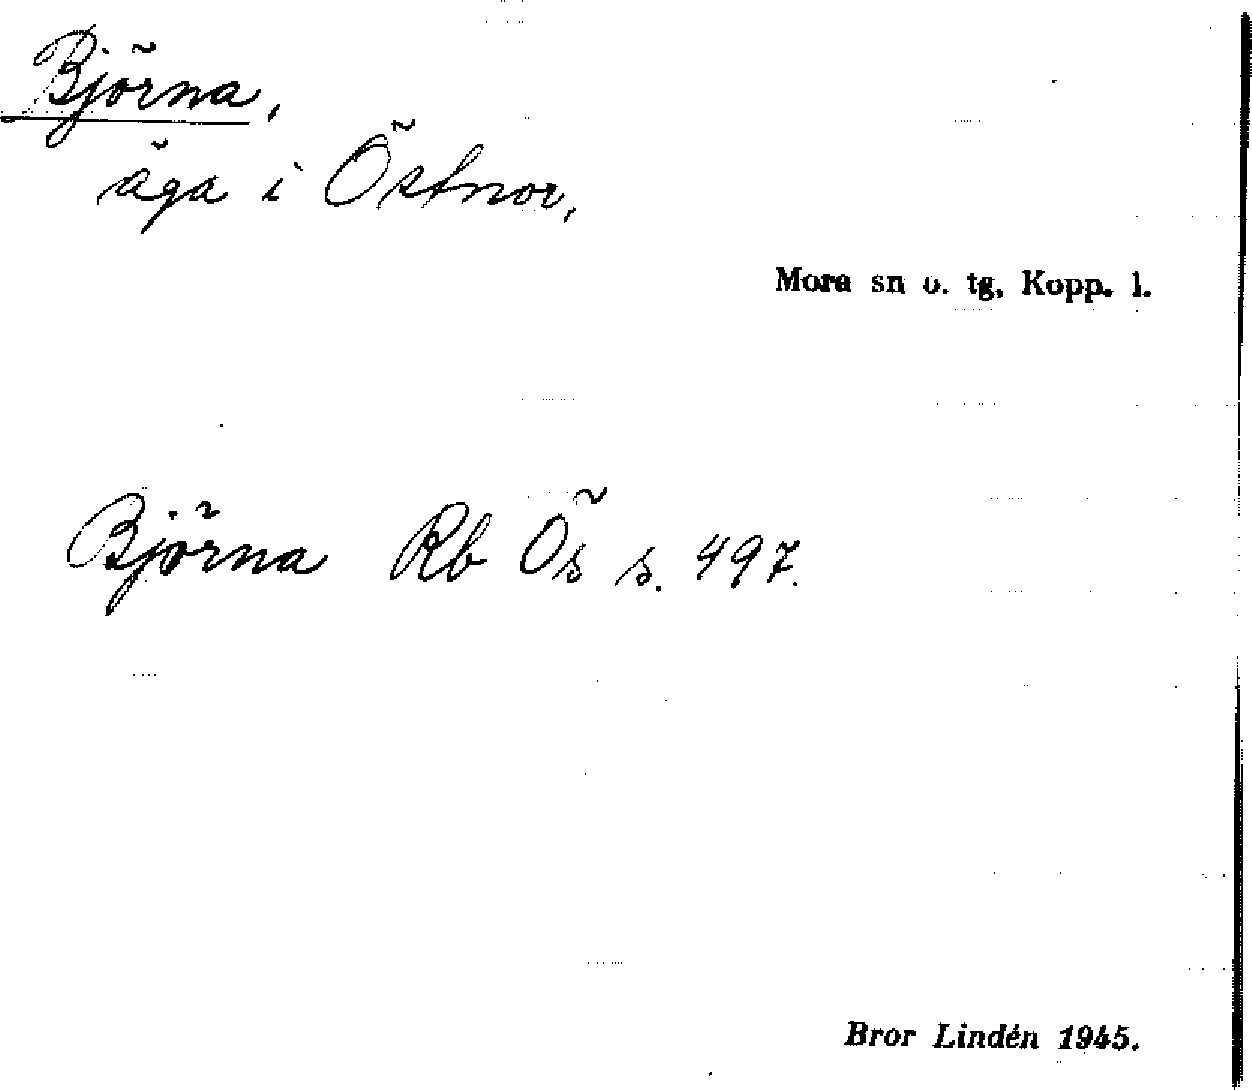 Björna,
äga i Östnor,
Mora sn o. tg, Kopp. l.
Björna Rb Ös s. 497.
Bror Lindén 1945.